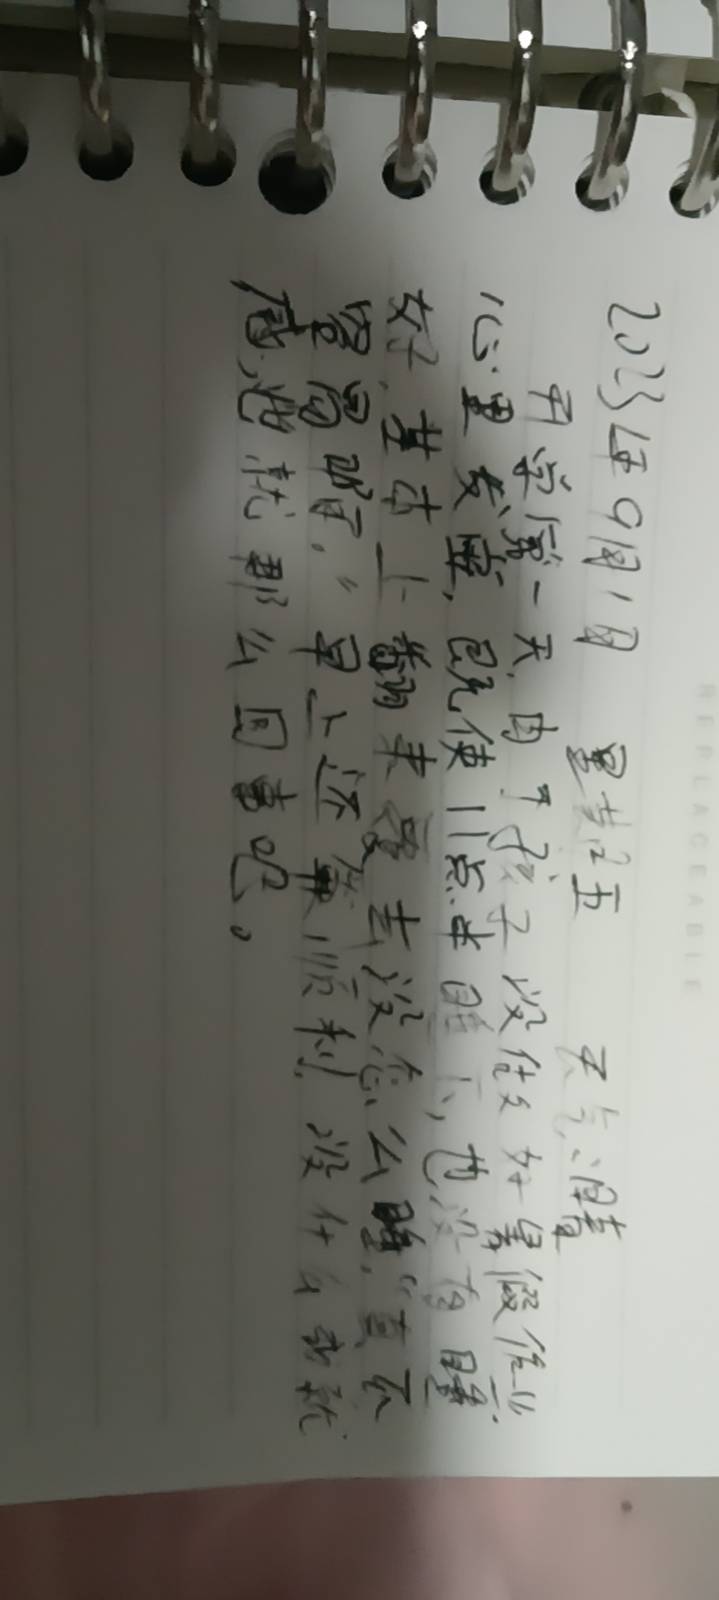 2023年9月1日 星期五 天气:晴
开学第一天,由于孩子没做好暑假作业
心里发虚,既使11点半睡下,也没有睡
好,基本上翻来覆去没怎么睡,“真不
早上还算顺利,没什么成就
感,也就那么回事吧。
REPLACEABLE